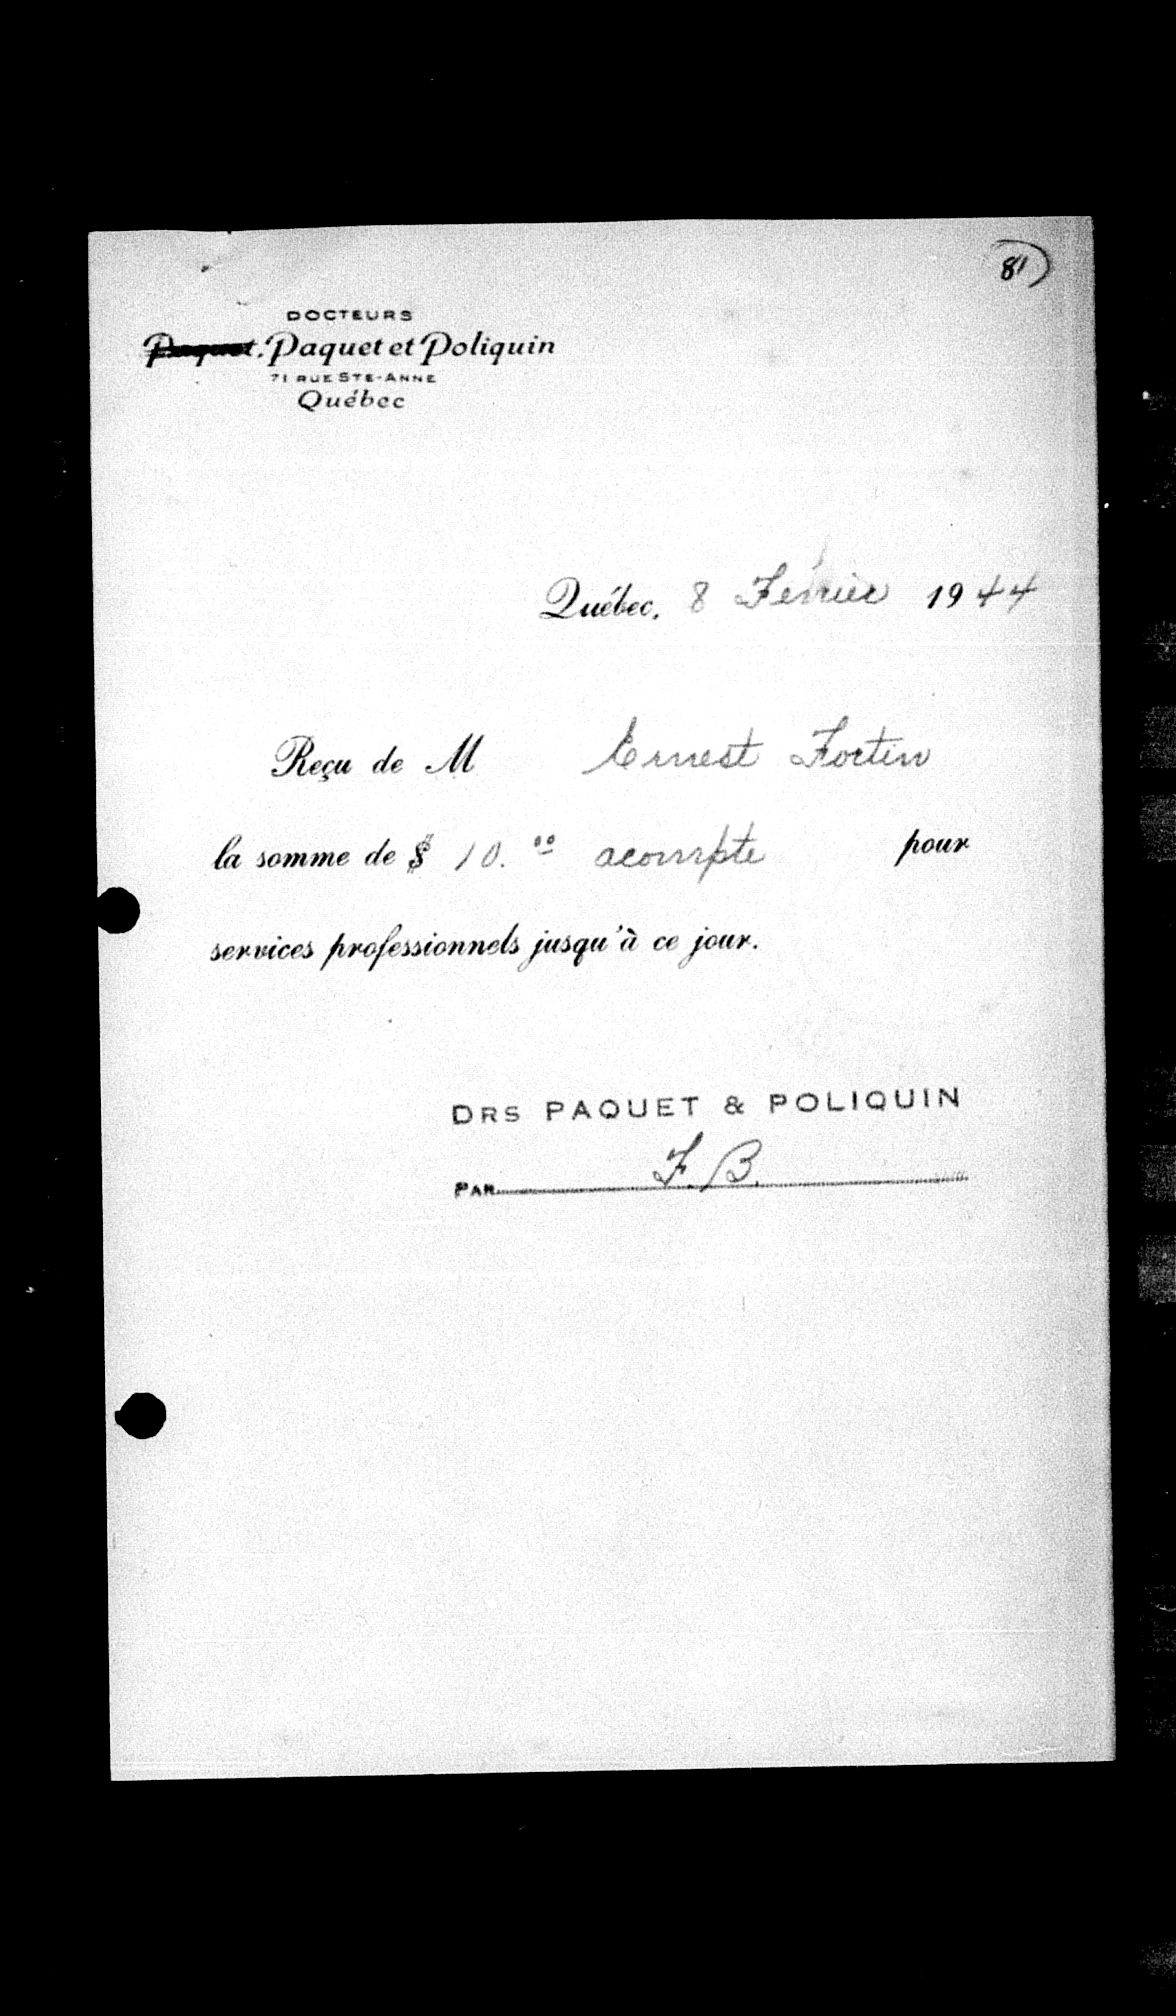 81
DOCTEURS
Paquet, Paquet et Poliquin
71 RUE STE-ANNE
Québec
Québec, 8 Février 1944
Reçu de M Ernest Fortin
la somme de $ 10.00 acompte pour
services professionnels jusqu'à ce jour.
DRS PAQUET & POLIQUIN
PAR F. B.